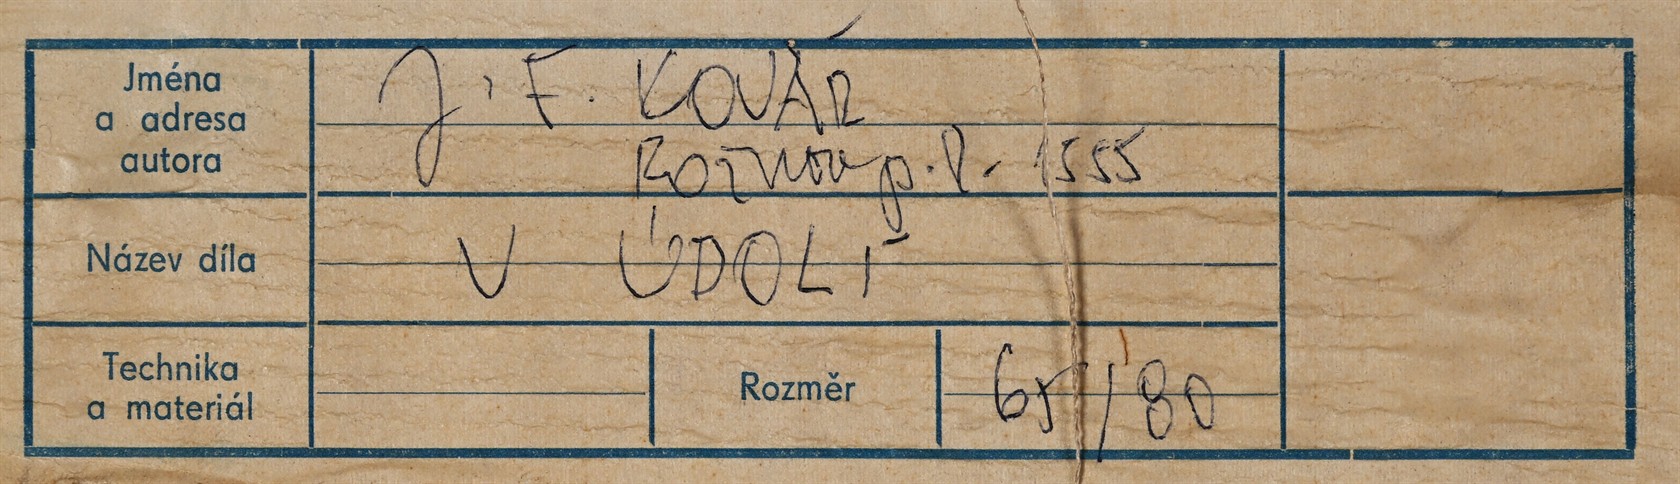 Jména
a adresa
autora
J. F. KOVÁŘ
ROŽNOV p. R. 1555
Název díla
V ÚDOLÍ
Technika
a materiál
Rozměr
65/80